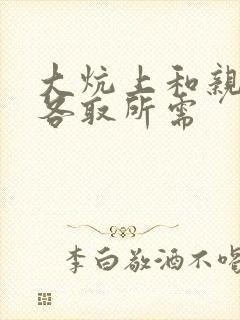 大炕上和親
各取所需
李白敬酒不喝